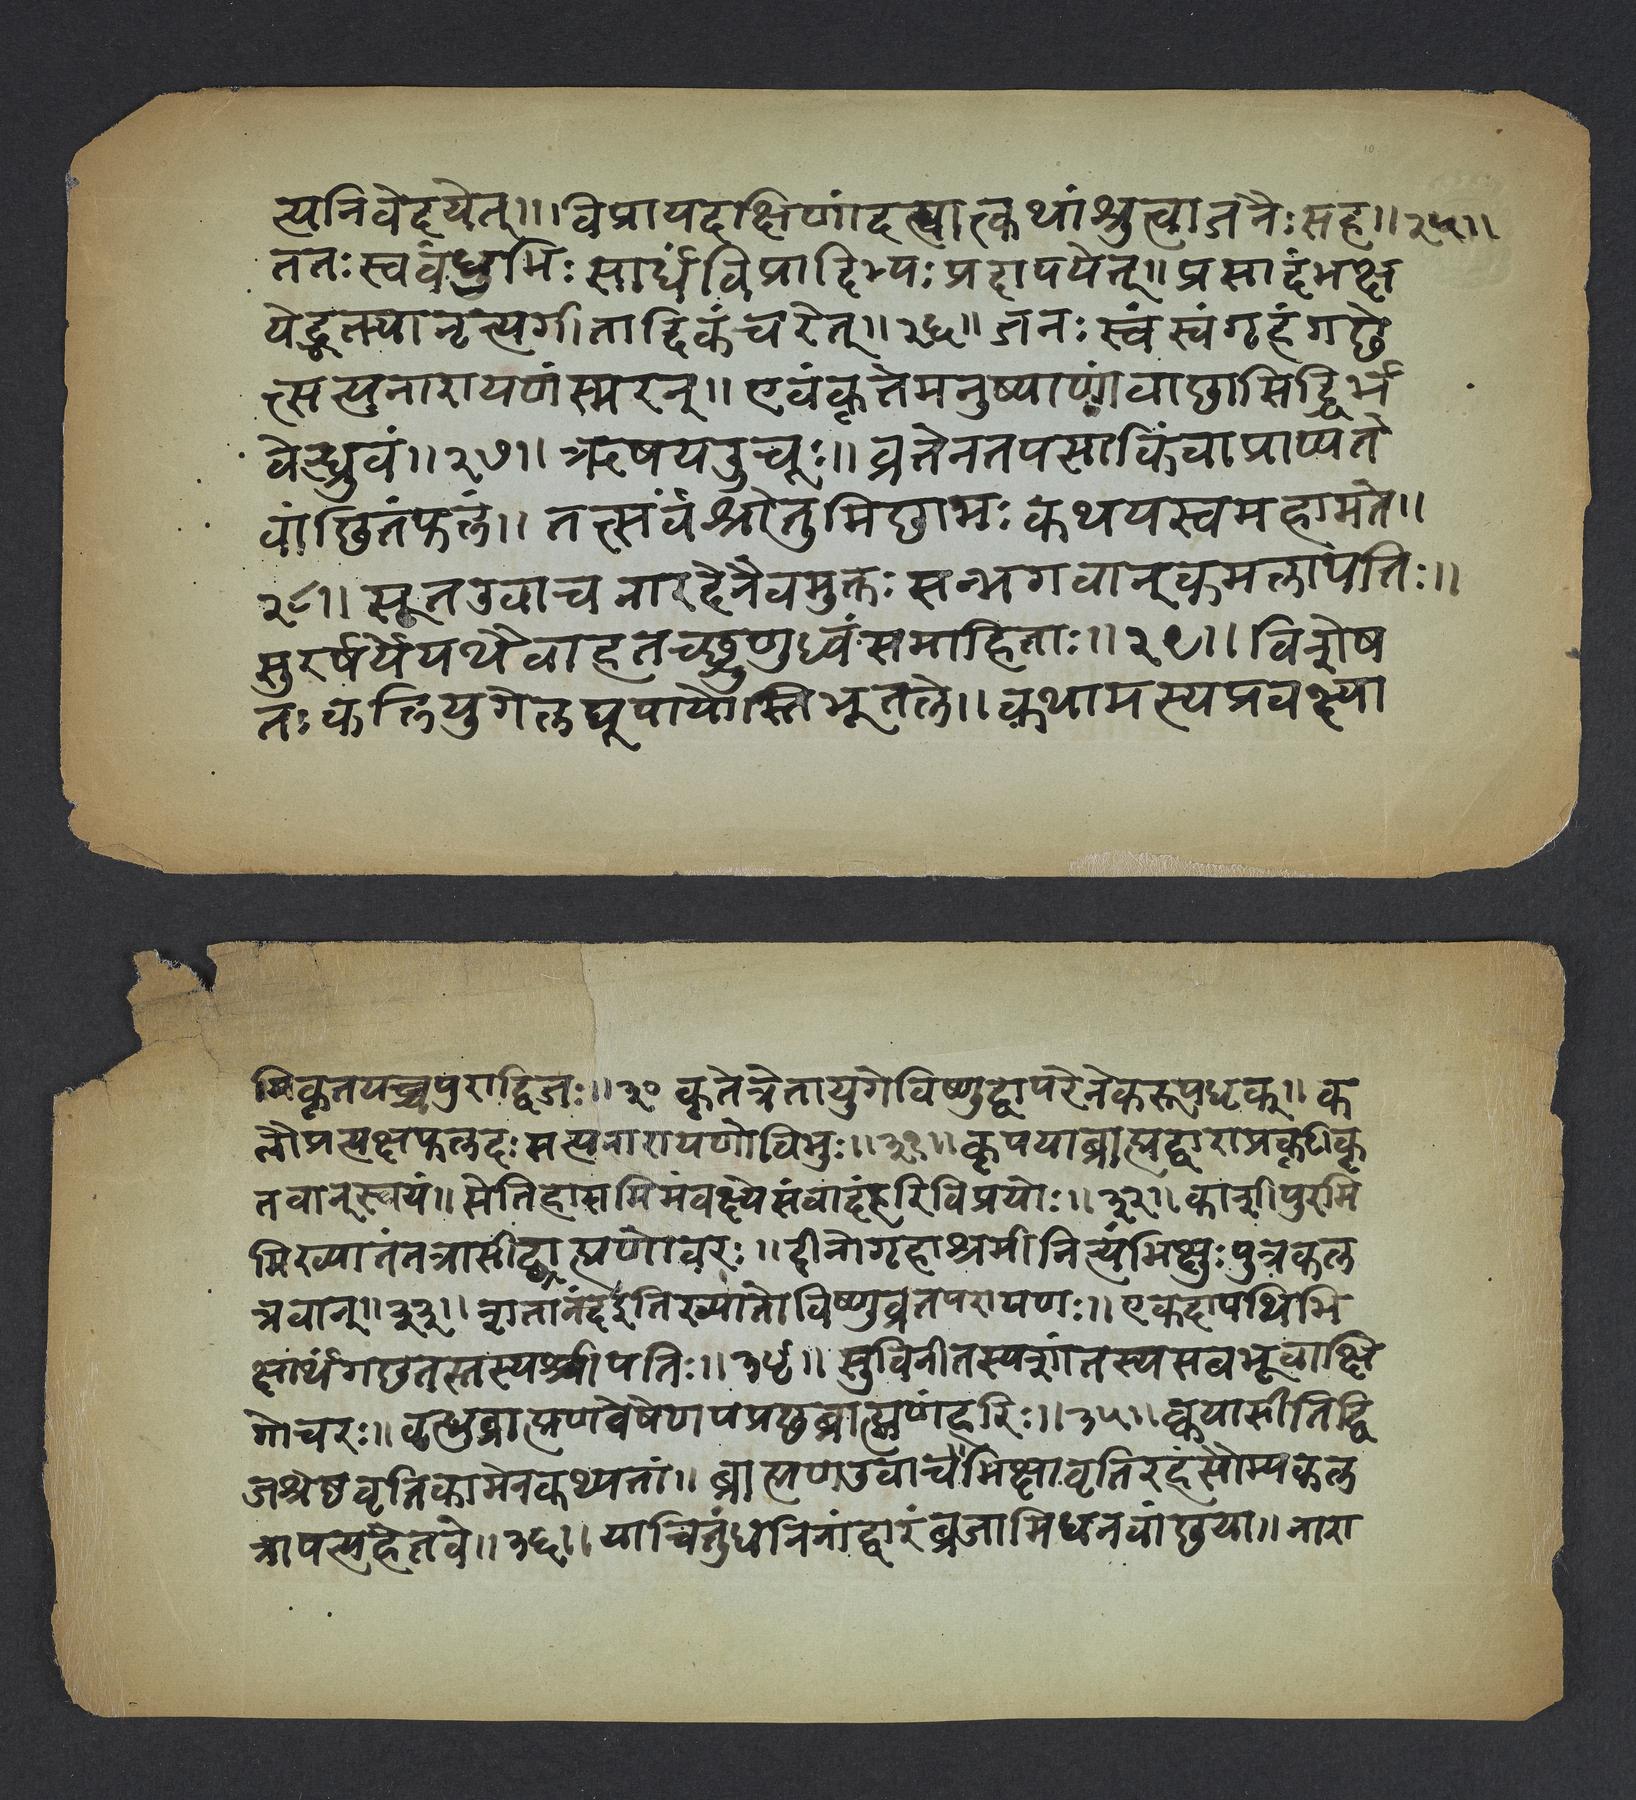 त्यनिवेदयेत्।।। विप्रायदक्षिणांदत्वात्कथांश्रुत्वाजनैः सह।। २५।।
ततः स्वबंधुभिः सार्धंविप्रादिभ्यः प्रदापयेत्।। प्रसादंभक्ष
येद्भक्त्यानृत्यगीतादिकंचरेत्।। २६।। जनः स्वं स्वंगृहंगछे
त्सत्यनारायणंस्मरन्।। एवंकृतेमनुष्याणांवाछासिद्धिर्भ
वेत्ध्रुवं।। २७।। ऋषयउचूः।। व्रतेनतपसाकिंवाप्राप्यते
वांछितंफलं।। तत्सर्वंश्रोतुमिछामः कथयस्वमहामते।।
२८।। सूतउवाच नारदेनैवमुक्तः सन्भगवान्कमलापतिः।।
सुरर्षयेयथैवाहतच्छृणुध्वंसमाहिताः।। २९।। विशेष
तः कलियुगेलघूपायोस्तिभूतले।। कथामस्यप्रवक्ष्या
मिकृतयच्चपुराद्विजः।। ३० कृतेत्रेतायुगेविष्णुद्वापरेनेकरूपधृक्।। क
लौप्रत्यक्षफलदः सत्यनारायणोविभुः।। ३१।। कृपयाब्राह्मद्वाराप्रकृटीकृ
तवान्स्वयं।। सेतिहासमिमंवक्ष्येसंवादंहरिविप्रयोः।। ३२।। काशीपुरमि
मिख्यातंतत्रासीद्ब्राह्मणोवरः।। दीनोगृहाश्रमीनित्यंभिक्षुः पुत्रकल
त्रवान्।। ३३।। शतानंदइतिख्यातोविष्णुव्रतपरायणः।। एकदापथिभि
क्षार्थंगछतस्तस्यश्रीपतिः।। ३४।। सुविनीतस्यशांतस्यसबभूवाक्षि
गोचरः।। वृत्धब्राह्मणवेषेणपप्रछब्राह्मणंहरिः।। ३५।। क्वयासीतिद्वि
जश्रेष्ठवृतिकामेनकथ्यतां।। ब्राह्मणउवाच।। भिक्षावृतिरहंसौम्यकल
त्रापत्यहेतवे।। ३६।। याचितुंधनिनांद्वारंव्रजामिधनवांछया।। नारा